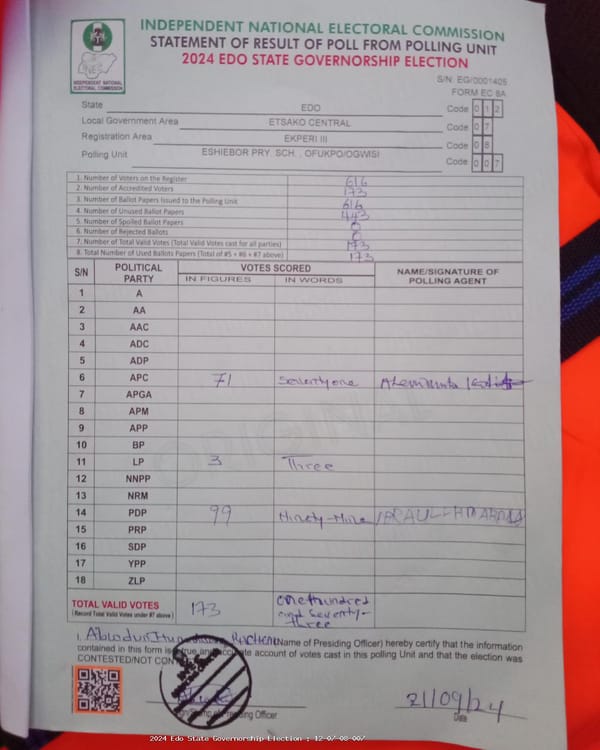 INDEPENDENT NATIONAL ELECTORAL COMMISSION
STATEMENT OF RESULT OF POLL FROM POLLING UNIT
2024 EDO STATE GOVERNORSHIP ELECTION
INDEPENDENT NATIONAL ELECTORAL COMMISSION
S/N: EG/0001405
FORM EC 8A
State EDO Code 0 1 2
Local Government Area ETSAKO CENTRAL Code 0 7
Registration Area EKPERI III Code 0 8
Polling Unit ESHIEBOR PRY. SCH., OFUKPO/OGWISI Code 0 0 7
1. Number of Voters on the Register 616
2. Number of Accredited Voters 173
3. Number of Ballot Papers Issued to the Polling Unit 616
4. Number of Unused Ballot Papers 443
5. Number of Spoiled Ballot Papers 0
6. Number of Rejected Ballots 0
7. Number of Total Valid Votes (Total Valid Votes cast for all parties) 173
8. Total Number of Used Ballots Papers (Total of #5 + #6 + #7 above) 173
S/N POLITICAL PARTY VOTES SCORED NAME/SIGNATURE OF POLLING AGENT
IN FIGURES IN WORDS
1 A
2 AA
3 AAC
4 ADC
5 ADP
6 APC 71 Seventyone
7 APGA
8 APM
9 APP
10 BP
11 LP 3 Three
12 NNPP
13 NRM
14 PDP 99 Ninety-Nine
15 PRP
16 SDP
17 YPP
18 ZLP
ORIGINAL
TOTAL VALID VOTES 173 Onehundred and Seventy-Three
(Record Total Valid Votes under #7 above)
I, (Name of Presiding Officer) hereby certify that the information
contained in this form is true and accurate account of votes cast in this polling Unit and that the election was
CONTESTED/NOT
Presiding Officer
21/09/24
Date
2024 Edo State Governorship Election : 12-07-08-007